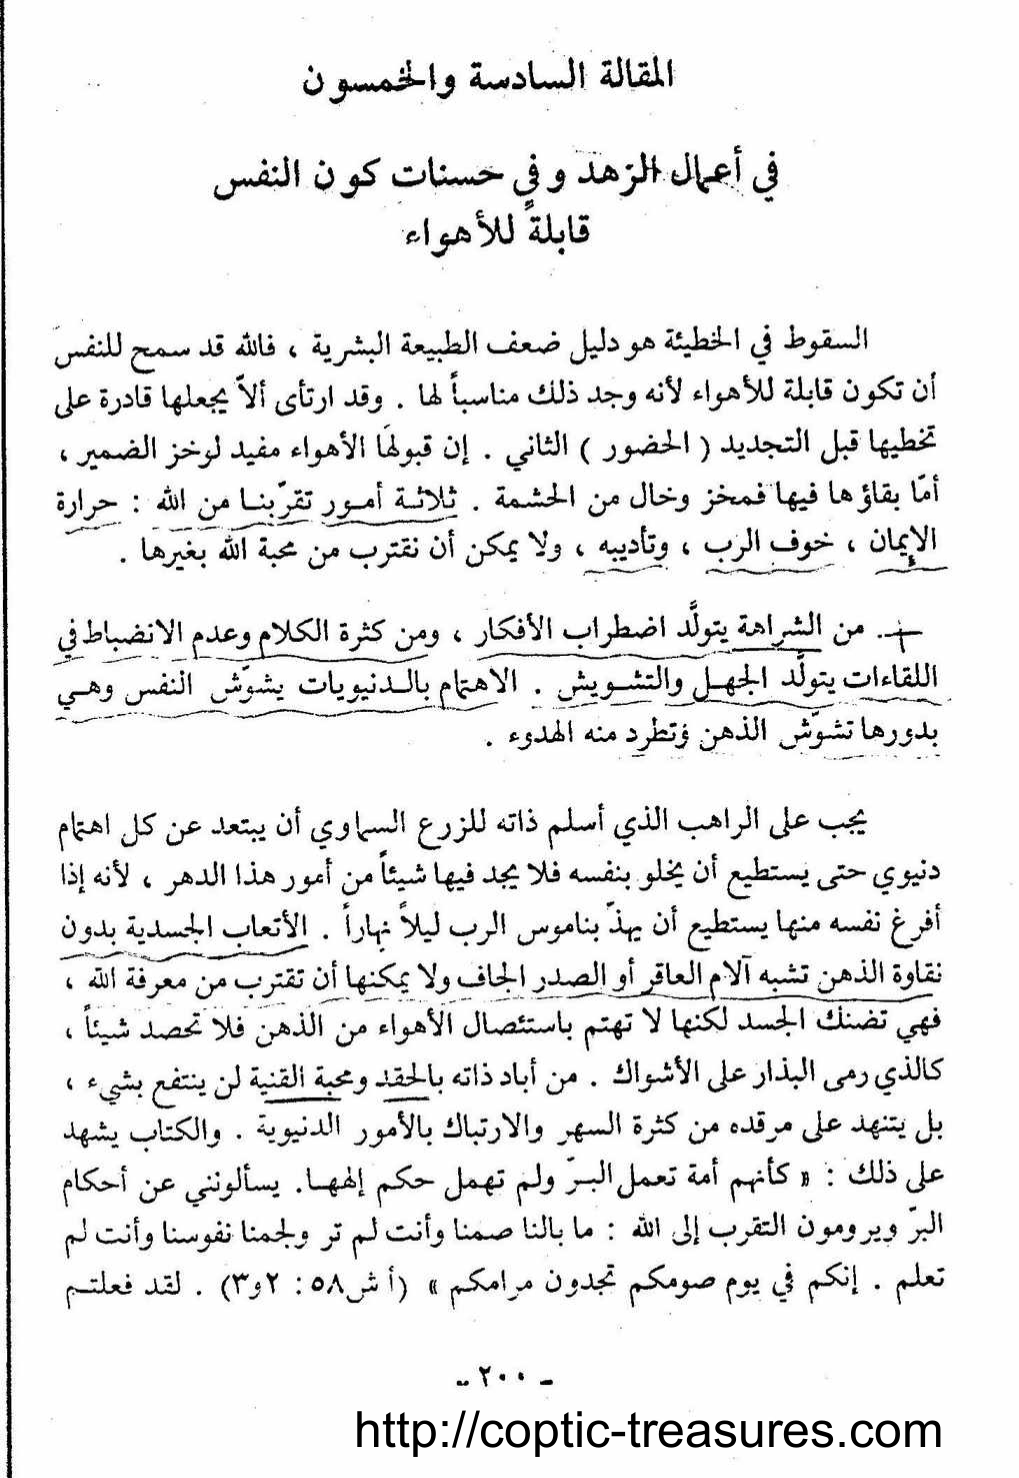 المقالة السادسة والخمسون
في أعمال الزهد وفي حسنات كون النفس
قابلةً للأهواء
السقوط في الخطيئة هو دليل ضعف الطبيعة البشرية ، فالله قد سمح للنفس
أن تكون قابلة للأهواء لأنه وجد ذلك مناسباً لها . وقد ارتأى ألاّ يجعلها قادرة على
تخطيها قبل التجديد ( الحضور ) الثاني . إن قبولها الأهواء مفيد لوخز الضمير ،
أمّا بقاؤها فيها فمخز وخال من الحشمة . ثلاثة أمور تقرّبنا من الله : حرارة
الإيمان ، خوف الرب ، وتأديبه ، ولا يمكن أن نقترب من محبة الله بغيرها .
+ . من الشراهة يتولَّد اضطراب الأفكار ، ومن كثرة الكلام وعدم الانضباط في
اللقاءات يتولَّد الجهل والتشويش . الاهتمام بالدنيويات يشوّش النفس وهي
بدورها تشوّش الذهن وتطرد منه الهدوء .
يجب على الراهب الذي أسلم ذاته للزرع السماوي أن يبتعد عن كل اهتمام
دنيوي حتى يستطيع أن يخلو بنفسه فلا يجد فيها شيئاً من أمور هذا الدهر ، لأنه إذا
أفرغ نفسه منها يستطيع أن يهذّ بناموس الرب ليلاً نهاراً . الأتعاب الجسدية بدون
نقاوة الذهن تشبه آلام العاقر أو الصدر الجاف ولا يمكنها أن تقترب من معرفة الله ،
فهي تضنك الجسد لكنها لا تهتم باستئصال الأهواء من الذهن فلا تحصد شيئاً ،
كالذي رمى البذار على الأشواك . من أباد ذاته بالحقد ومحبة القنية لن ينتفع بشيء ،
بل يتنهد على مرقده من كثرة السهر والارتباك بالأمور الدنيوية . والكتاب يشهد
على ذلك : « كأنهم أمة تعمل البرّ ولم تهمل حكم إلهها. يسألونني عن أحكام
البرّ ويرومون التقرب إلى الله : ما بالنا صمنا وأنت لم تر ولجمنا نفوسنا وأنت لم
تعلم . إنكم في يوم صومكم تجدون مرامكم » (أش٥٨: ٢و٣) . لقد فعلتم
- ٢٠٠ -
http://coptic-treasures.com